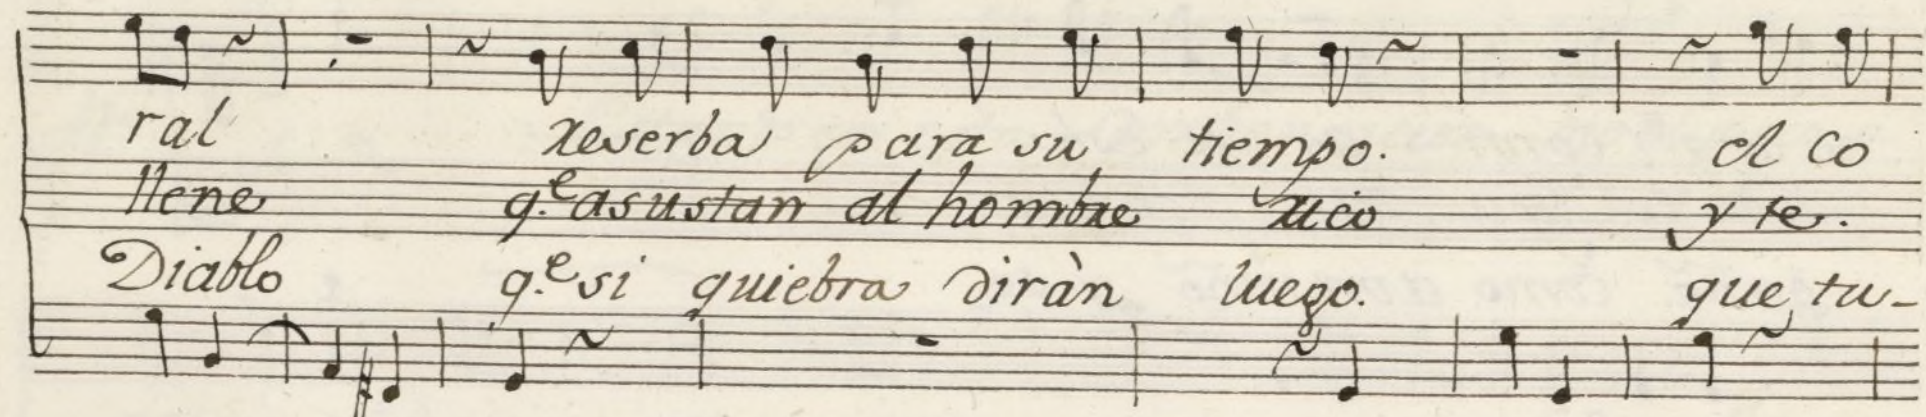 ral reserba para su tiempo. el co
llene q.e asustan al hombre rico y te.
Diablo q.e si quiebra diràn luego. que tu-